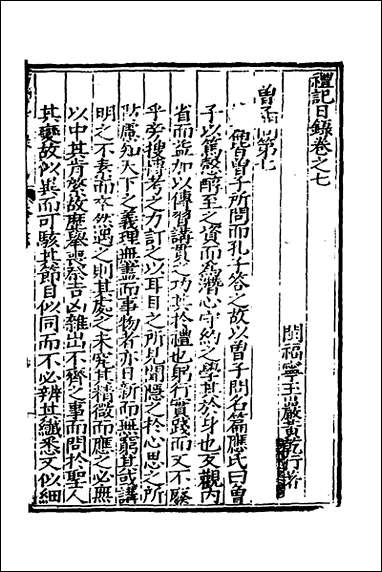 禮記日錄卷之七
閩福寧玉巖黃乾行著
曾子問第七
篇皆曾子所問而孔子答之故以曾子問名篇應氏曰曾
子以篤慤醇至之資而為潛心守約之學其於身也反觀內
省而益加以傳習講貫之功其於禮也躬行實踐而又不廢
乎旁搜博考之方訂之以耳目之所見聞隱之於心思之所
防慮知天下之義理無盡而事物者亦日新而無窮其或講
明之不素而卒然遇之則其處之未究其精微而應之必無
以中其肯綮故歷舉喪祭吉凶雜出不齊之事而問於聖人
其變故似異而可駭其節目似同而不必辨其纖悉又似細